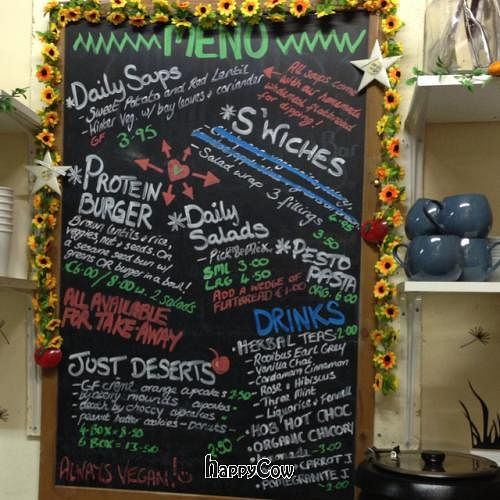 MENU
*Daily Soups
- Sweet Potato and Red Lentil
- Winter Veg. w/ bay leaves + coriander
GF 3.95
All soups come
with our homemade
flatbread
for dipping!
*S'WICHES
- Salad wrap 3 fillings
3.50
*PROTEIN
BURGER
Brown lentils + rice,
veggies nut + seeds. On
a sesame seed bun w/
greens OR burger in a bowl!
£6.00 / 8.00 w. 2 salads
*Daily
Salads
- Pick & Mix
SML 3.00
LRG 4.50
ADD A WEDGE OF
FLATBREAD £1.00
*PESTO
PASTA
LRG. 6.00
ALL AVAILABLE
FOR TAKE AWAY
DRINKS
• HERBAL TEAS 2.00
- Rooibus Earl Grey
- Vanilla Chai
- Cardamom Cinnamon
- Rose + Hibiscus
- Three Mint
- Liquorice + Fennel
• HOB HOT CHOC
• ORGANIC CHICORY
3.00
CARROT J
POMEGRANATE J
2.00
JUST DESERTS
- GF creme orange cupcakes - 2.50
- cherry mounds - cupcakes -
choccy cupcakes
- peanut butter cookies - Donuts -
4 BOX = 8.50
6 BOX = 13.50
2.50
ALWAYS VEGAN!
HappyCow